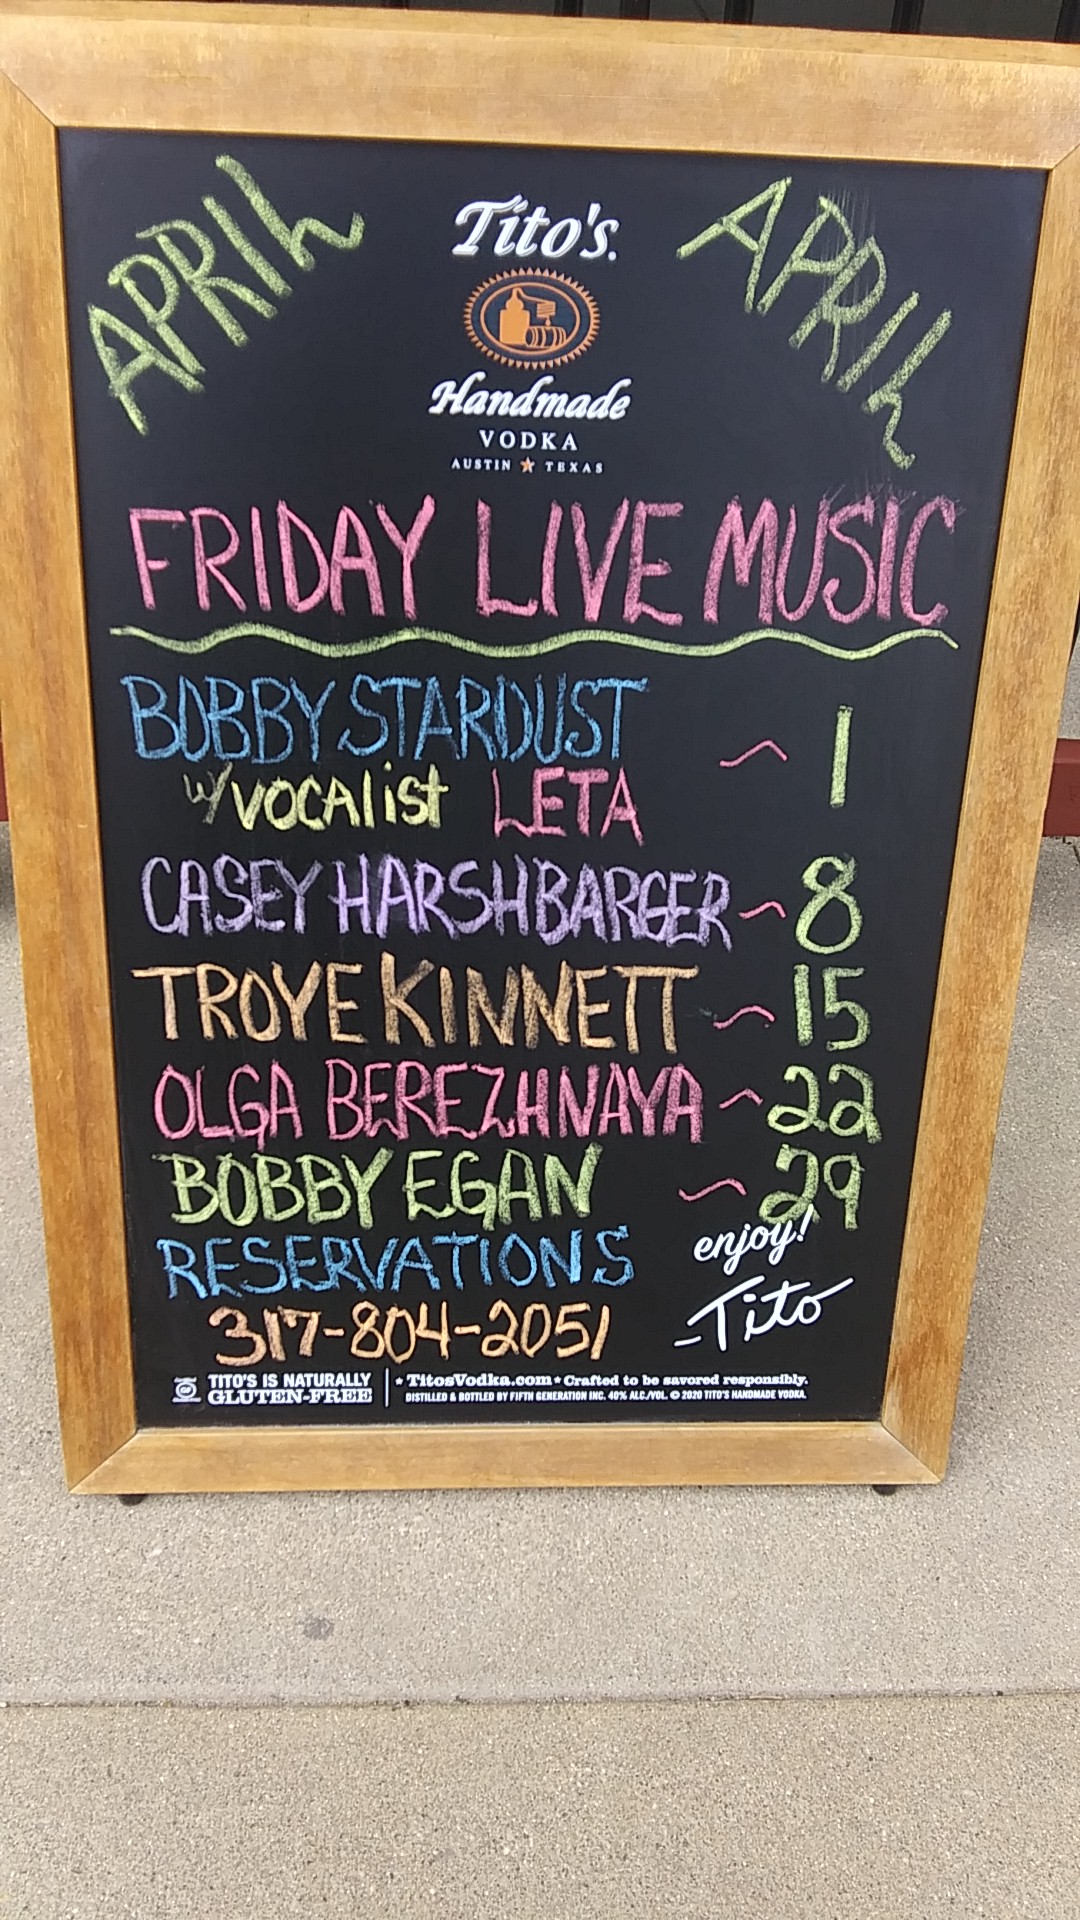 APRIL
APRIL
Tito's
Handmade
VODKA
AUSTIN ★ TEXAS
FRIDAY LIVE MUSIC
BOBBY STARDUST ~ 1
w/ VOCAlist LETA
CASEY HARSHBARGER ~ 8
TROYE KINNETT ~ 15
OLGA BEREZHNAYA ~ 22
BOBBY EGAN ~ 29
RESERVATIONS
317-804-2051
enjoy!
-Tito
TITO'S IS NATURALLY
GLUTEN-FREE
★ TitosVodka.com ★ Crafted to be savored responsibly.
DISTILLED & BOTTLED BY FIFTH GENERATION INC. 40% ALC./VOL. © 2020 TITO'S HANDMADE VODKA.